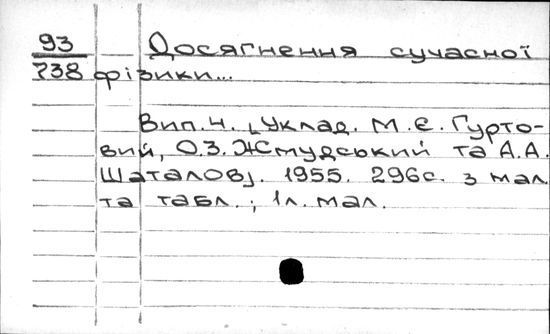 93 Досягнення сучасної
738 фізики...
Вип. 4. [Уклад. М. Є. Гурто-
вий, О.З. Жмудський та А.А.
Шаталов]. 1955. 296с. з мал.
та табл.; 1л. мал.